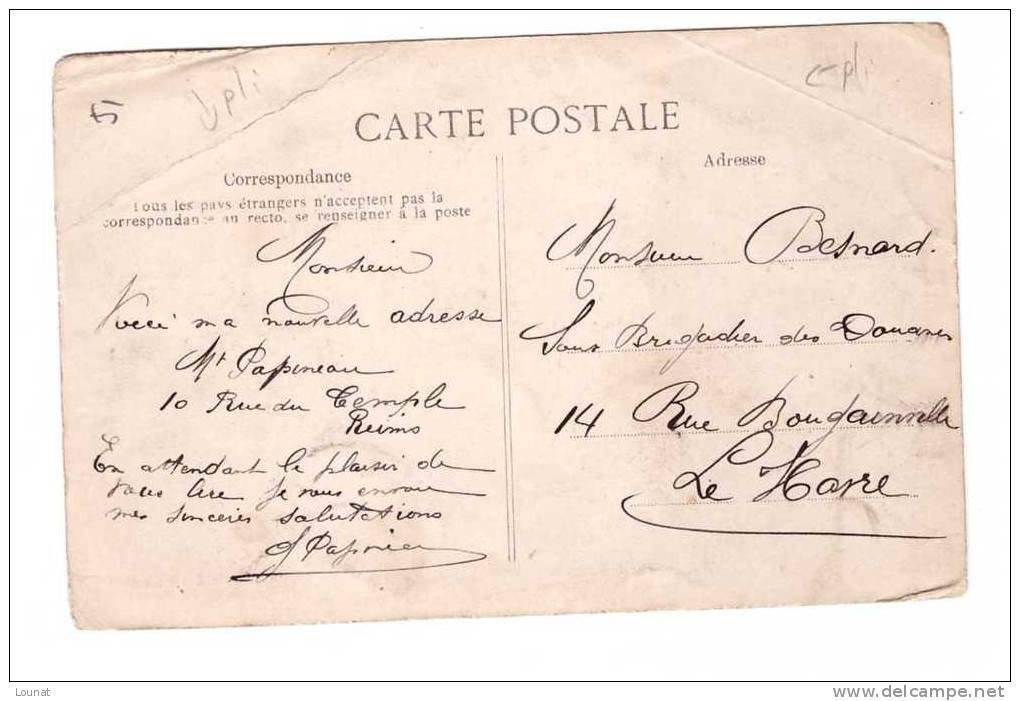 5
pli
pli
CARTE POSTALE
Correspondance
Tous les pays étrangers n'acceptent pas la
correspondance au recto, se renseigner à la poste
Monsieur
Voici ma nouvelle adresse
Mr Papineau
10 Rue du Temple
Reims
En attendant le plaisir de
vous lire je vous envoie
mes sincères salutations
Papineau
Adresse
Monsieur Besnard.
Sous Brigadier des Douanes
14 Rue Bougainville
Le Havre
Lounat
www.delcampe.net